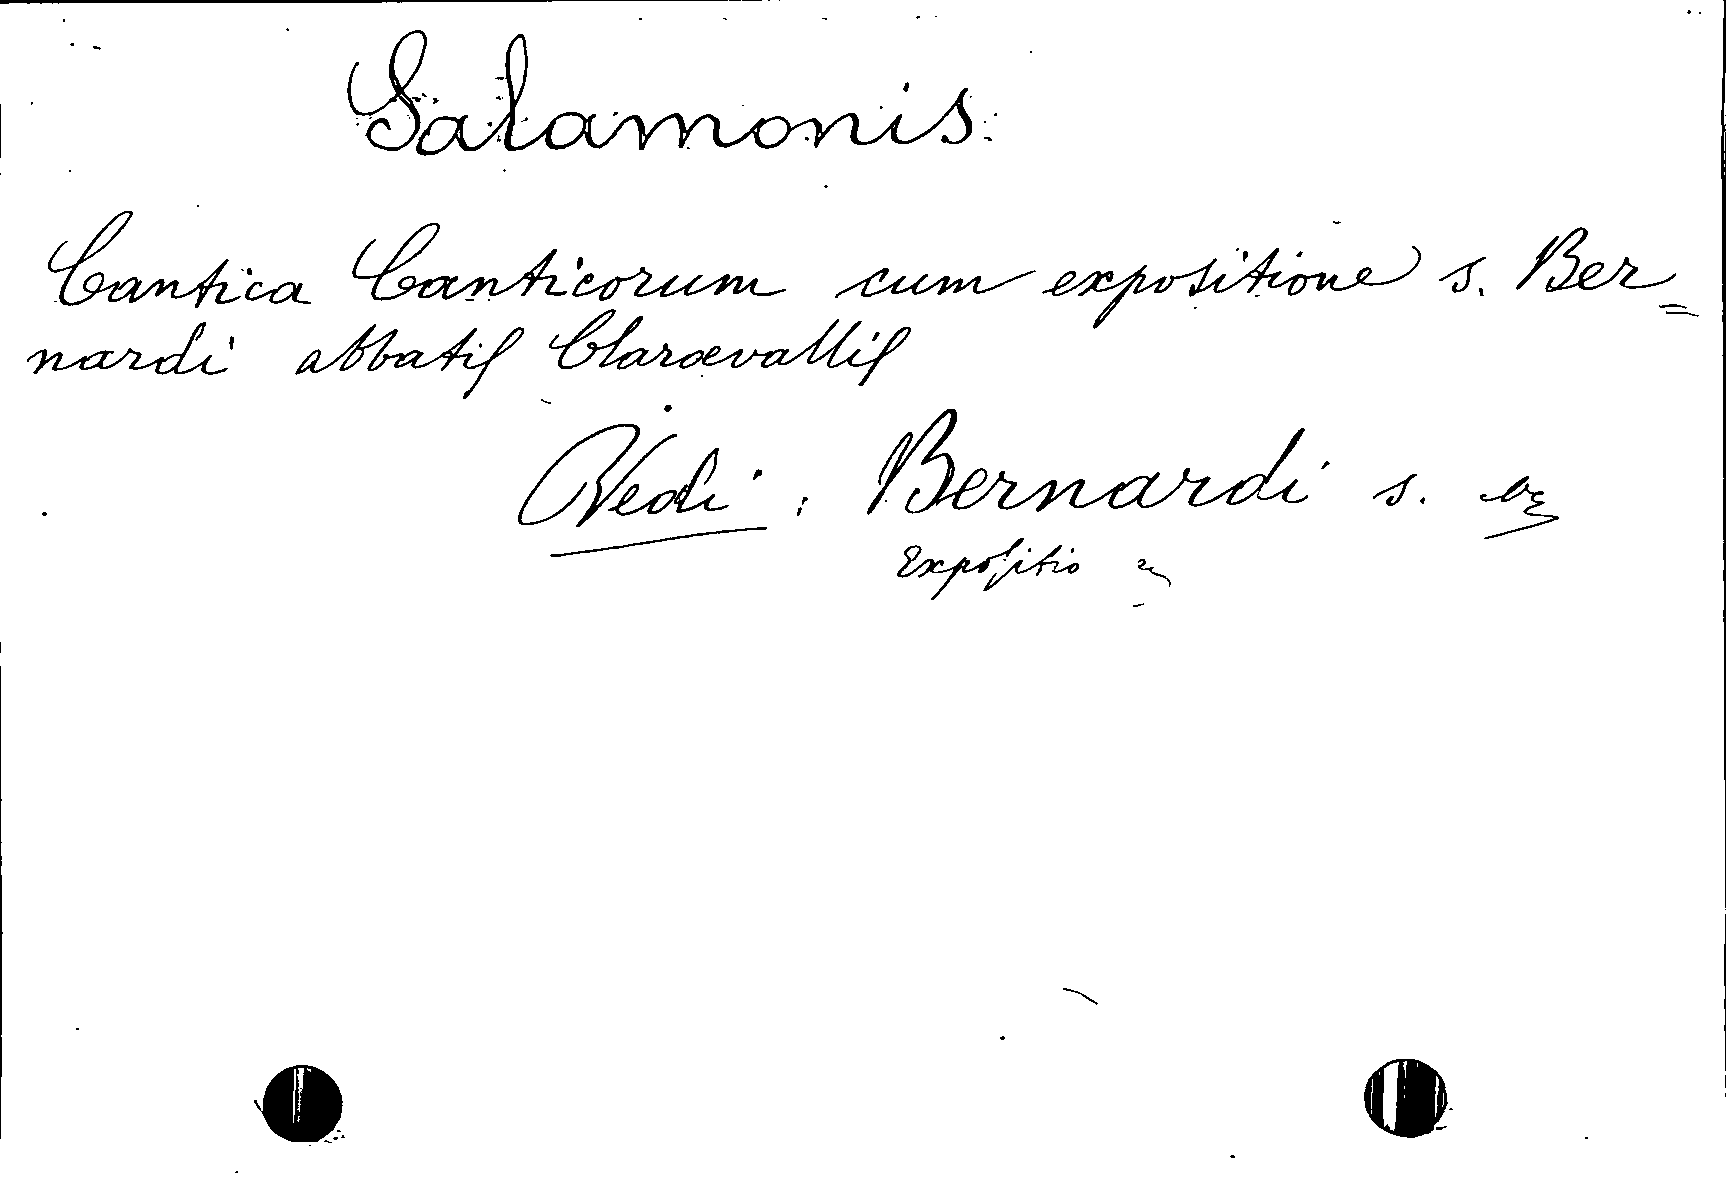 Salamonis
Cantica Canticorum cum expositione s. Ber=
nardi abbatis Claraevallis
Vedi: Bernardi s.
Expositio